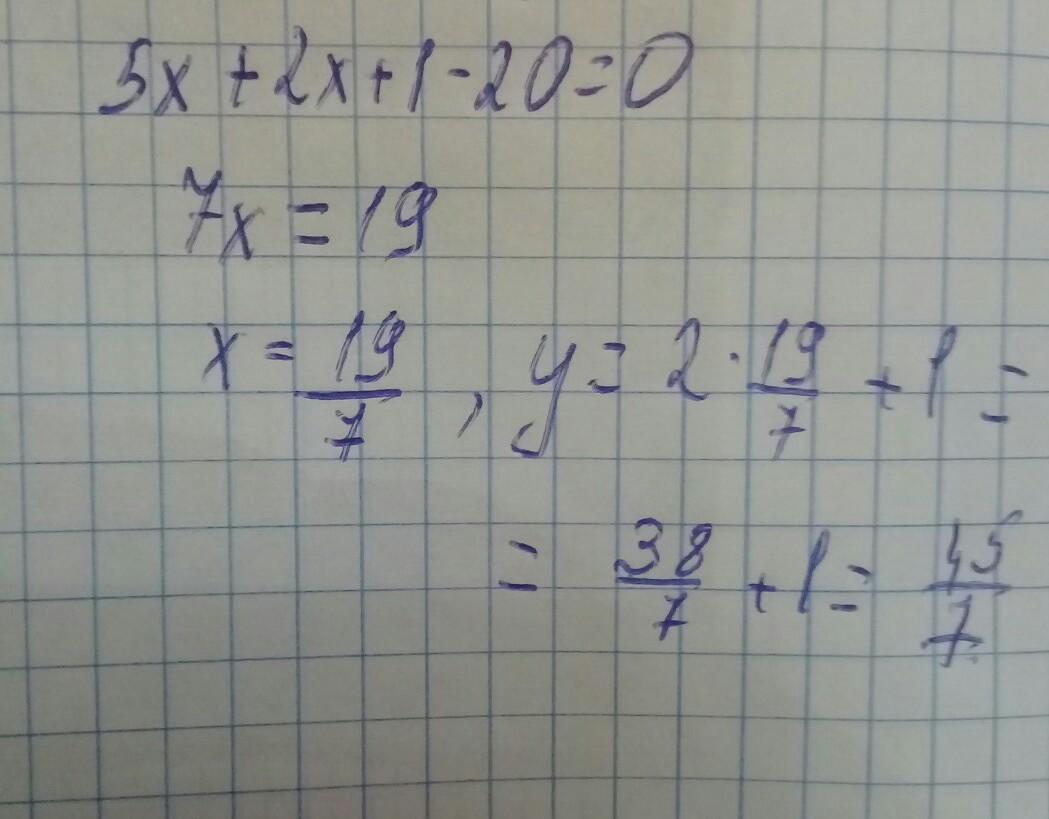 5x + 2x + 1 - 20 = 0
7x = 19
x = 19/7 , y = 2 · 19/7 + 1 =
= 38/7 + 1 = 45/7